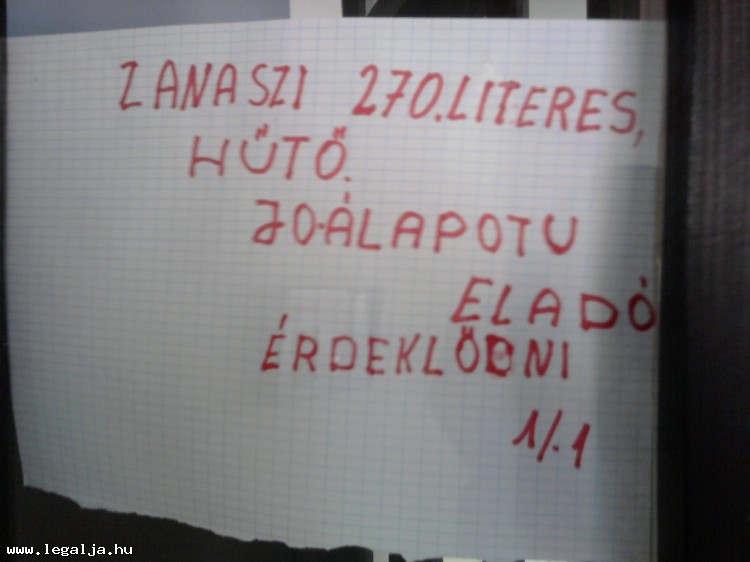 ZANASZI 270.LITERES,
HŰTŐ.
JO-ÁLAPOTU
ELADÓ
ÉRDEKLŐDNI
1/.1
www.legalja.hu